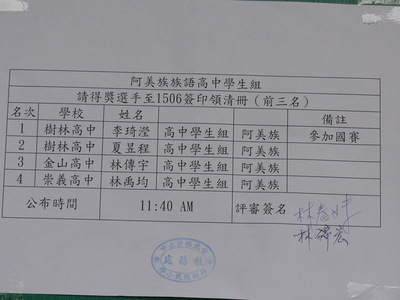 阿美族族語高中學生組
請得獎選手至1506簽印領清冊(前三名)
名次 學校 姓名 備註
1 樹林高中 李琦瀅 高中學生組 阿美族 參加國賽
2 樹林高中 夏昱程 高中學生組 阿美族
3 金山高中 林傳宇 高中學生組 阿美族
4 崇義高中 林禹均 高中學生組 阿美族
公布時間 11:40 AM 評審簽名
教務處